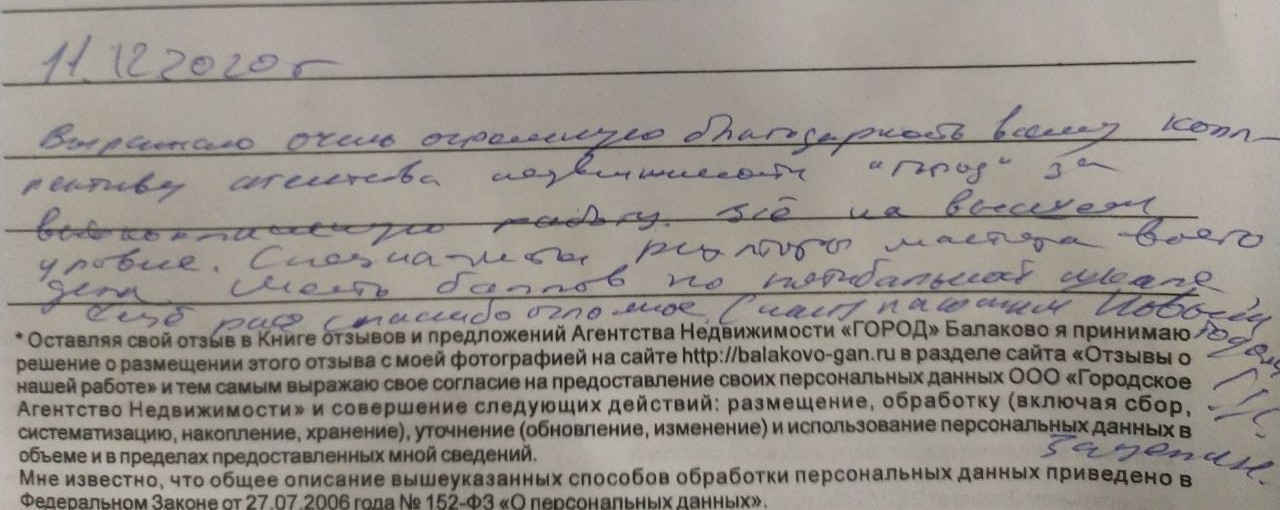 11.12.2020г
Выражаю очень огромную благодарность всему колл-
ективу агентства недвижимости "Город" за
высококлассную работу. Всё на высшем
уровне. Специалисты риэлторы мастера своего
дела. Шесть баллов по пятибальной шкале
Ещё раз спасибо огромное. С наступающим Новым
годом
* Оставляя свой отзыв в Книге отзывов и предложений Агентства Недвижимости «ГОРОД» Балаково я принимаю
решение о размещении этого отзыва с моей фотографией на сайте http://balakovo-gan.ru в разделе сайта «Отзывы о
нашей работе» и тем самым выражаю свое согласие на предоставление своих персональных данных ООО «Городское
Агентство Недвижимости» и совершение следующих действий: размещение, обработку (включая сбор,
систематизацию, накопление, хранение), уточнение (обновление, изменение) и использование персональных данных в
объеме и в пределах предоставленных мной сведений.
Мне известно, что общее описание вышеуказанных способов обработки персональных данных приведено в
Федеральном Законе от 27.07.2006 года № 152-ФЗ «О персональных данных».